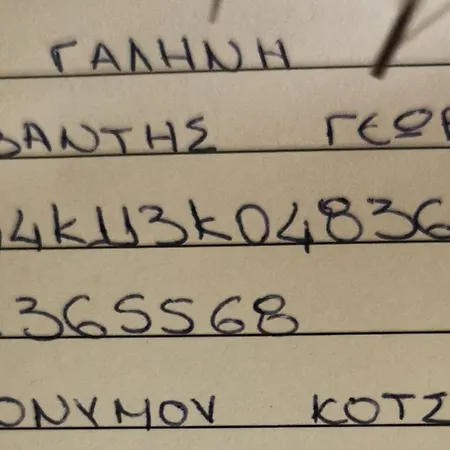 ΓΑΛΗΝΗ
ΒΑΝΤΗΣ ΓΕΩΡ
4K113K04836
365568
ΟΝΥΜΟΥ ΚΟΤΣ